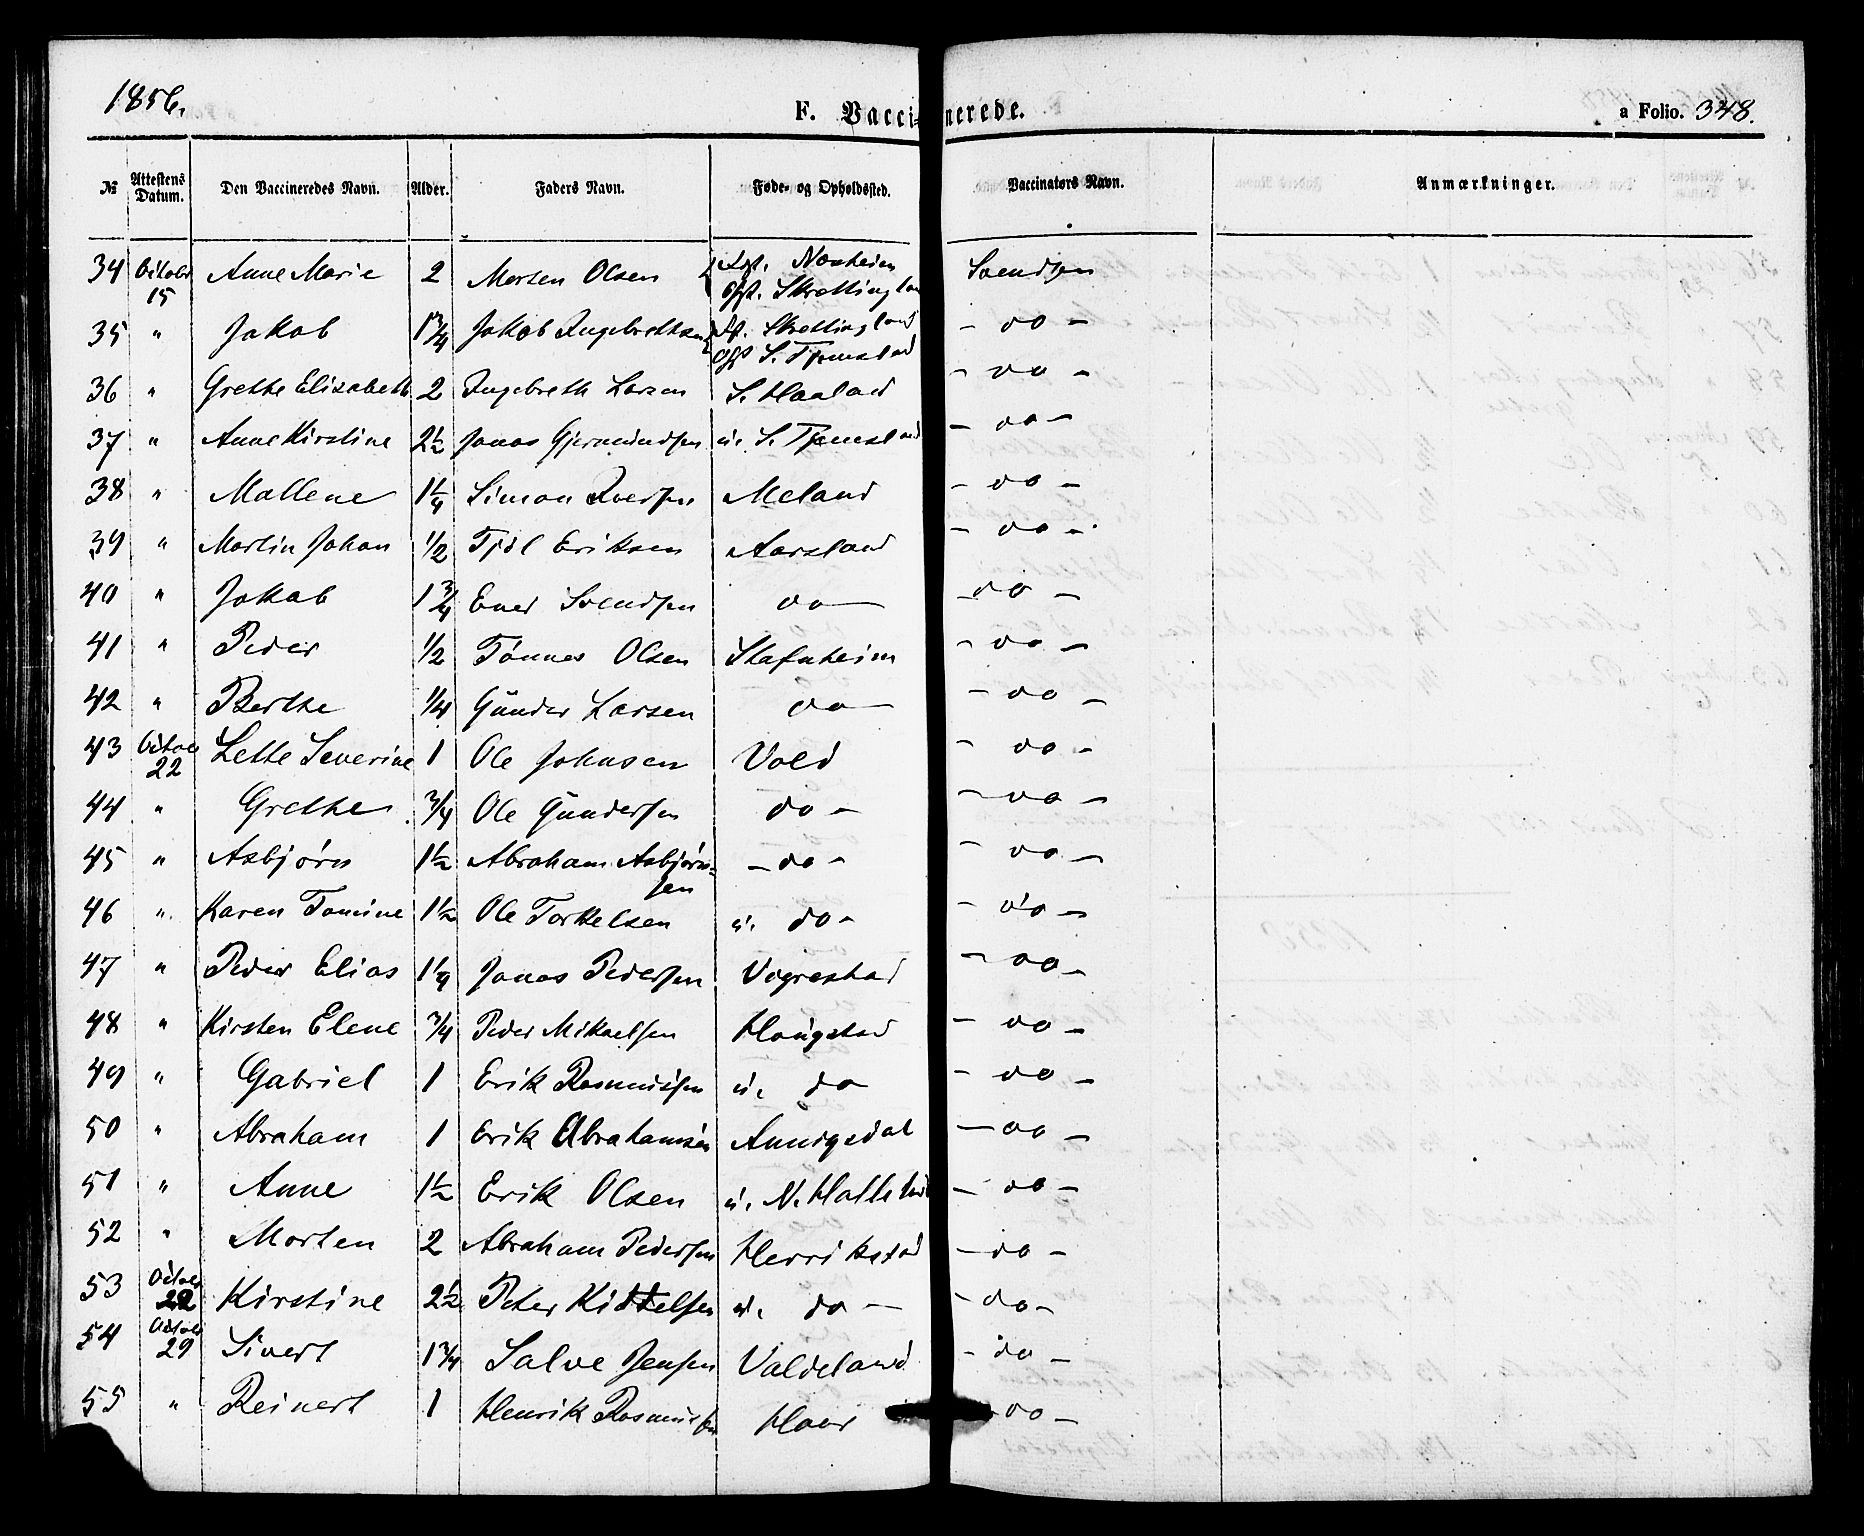 1856.
F. Vaccinerede.
a Folio. 348.
№ Attestens Datum. Den Vaccineredes Navn. Alder. Faders Navn. Føde- og Opholdssted. Vaccinators Navn. Anmærkninger.
34 Octobr 15 Anne Marie 2 Morten Olsen Nærheim Svendsen
Skrettingland
35 " Jakob 1 3/4 Jakob Ingebrethsen Skrettingland - do -
S. Tjemsland
36 " Grethe Elisabeth 2 Ingebreth Larsen S. Haaland - do -
37 " Anne Kirstine 2 1/2 Jonas Gjermundsen u. S. Tjemsland - do -
38 " Mallene 1 1/4 Simon Iversen Meland - do -
39 " Martin Johan 1/2 Tjöl Eriksen Aarsland - do -
40 " Jakob 1 3/4 Ener Svendsen do - do -
41 " Peder 1/2 Tönnes Olsen Stafnheim - do -
42 " Berthe 1/4 Gunder Larsen do - do -
43 Octobr 22 Lette Severine 1 Ole Johnsen Vold - do -
44 " Grethe 3/4 Ole Gundersen do - - do -
45 " Asbjørn 1 1/2 Abraham Asbjørn- - do - - do -
sen
46 " Karen Tomine 1 1/2 Ole Torkelsen u. do - - do -
47 " Peder Elias 1 1/4 Jonas Pedersen Vigrestad - do -
48 " Kirsten Elene 3/4 Peder Mikaelsen Haugstad - do -
49 " Gabriel 1 Erik Rasmussen u. do - do -
50 " Abraham 1 Erik Abrahamsen Anniqsdal - do -
51 " Anne 1 1/2 Erik Olsen u. N. - do -
52 " Morten 2 Abraham Pedersen Herrikstad - do -
53 Octobr 22 Kirstine 2 1/2 Peter Kittelsen u. do - - do -
54 Octobr 29 Sivert 1 3/4 Salve Jensen Valdeland - do -
55 " Reinert 1 Henrik Rasmussen Haar - do -